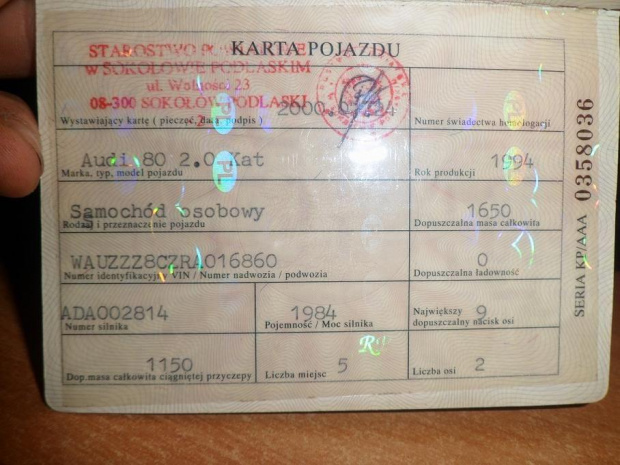 KARTA POJAZDU
STAROSTWO POWIATOWE
W SOKOŁOWIE PODLASKIM
ul. Wolności 23
08-300 SOKOŁÓW PODLASKI
Wystawiający kartę ( pieczęć, data, podpis )
Numer świadectwa homologacji
Audi 80 2.0 Kat
1994
Marka, typ, model pojazdu
Rok produkcji
Samochód osobowy
1650
Rodzaj i przeznaczenie pojazdu
Dopuszczalna masa całkowita
WAUZZZ8CZRA016860
0
Numer identyfikacyjny VIN / Numer nadwozia / podwozia
Dopuszczalna ładowność
ADA002814
1984
Największy 9
Numer silnika
Pojemność / Moc silnika
dopuszczalny nacisk osi
1150
5
2
Dop. masa całkowita ciągniętej przyczepy
Liczba miejsc
Liczba osi
SERIA KP/AAA 0358036
PL